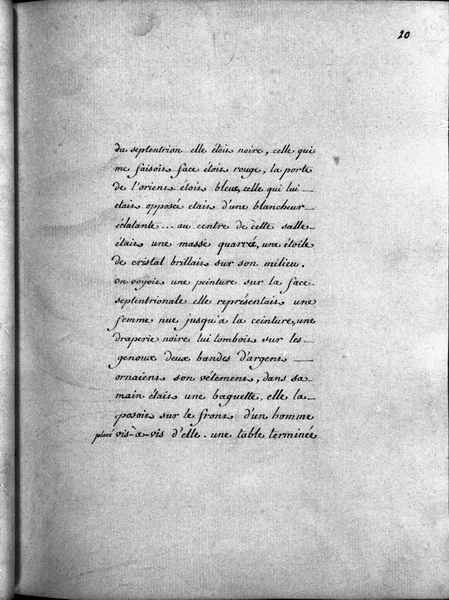 20
du septentrion elle étoit noire, celle qui
me faisoit face étoit rouge, la porte
de l'orient étoit bleue, celle qui lui
etait opposé etait d'une blancheur
éclatante... au centre de cette salle
était une masse quarré, une étoile
de cristal brillait sur son milieu.
on voyoit une peinture sur la face
septentrionale elle représentait une
femme nue jusqu'a la ceinture, une
draperie noire lui tomboit sur les
genoux deux bandes d'argent
ornaient son vêtement, dans sa
main était une baguette, elle la
posoit sur le front d'un homme
placé vis-à-vis d'elle. une table terminée